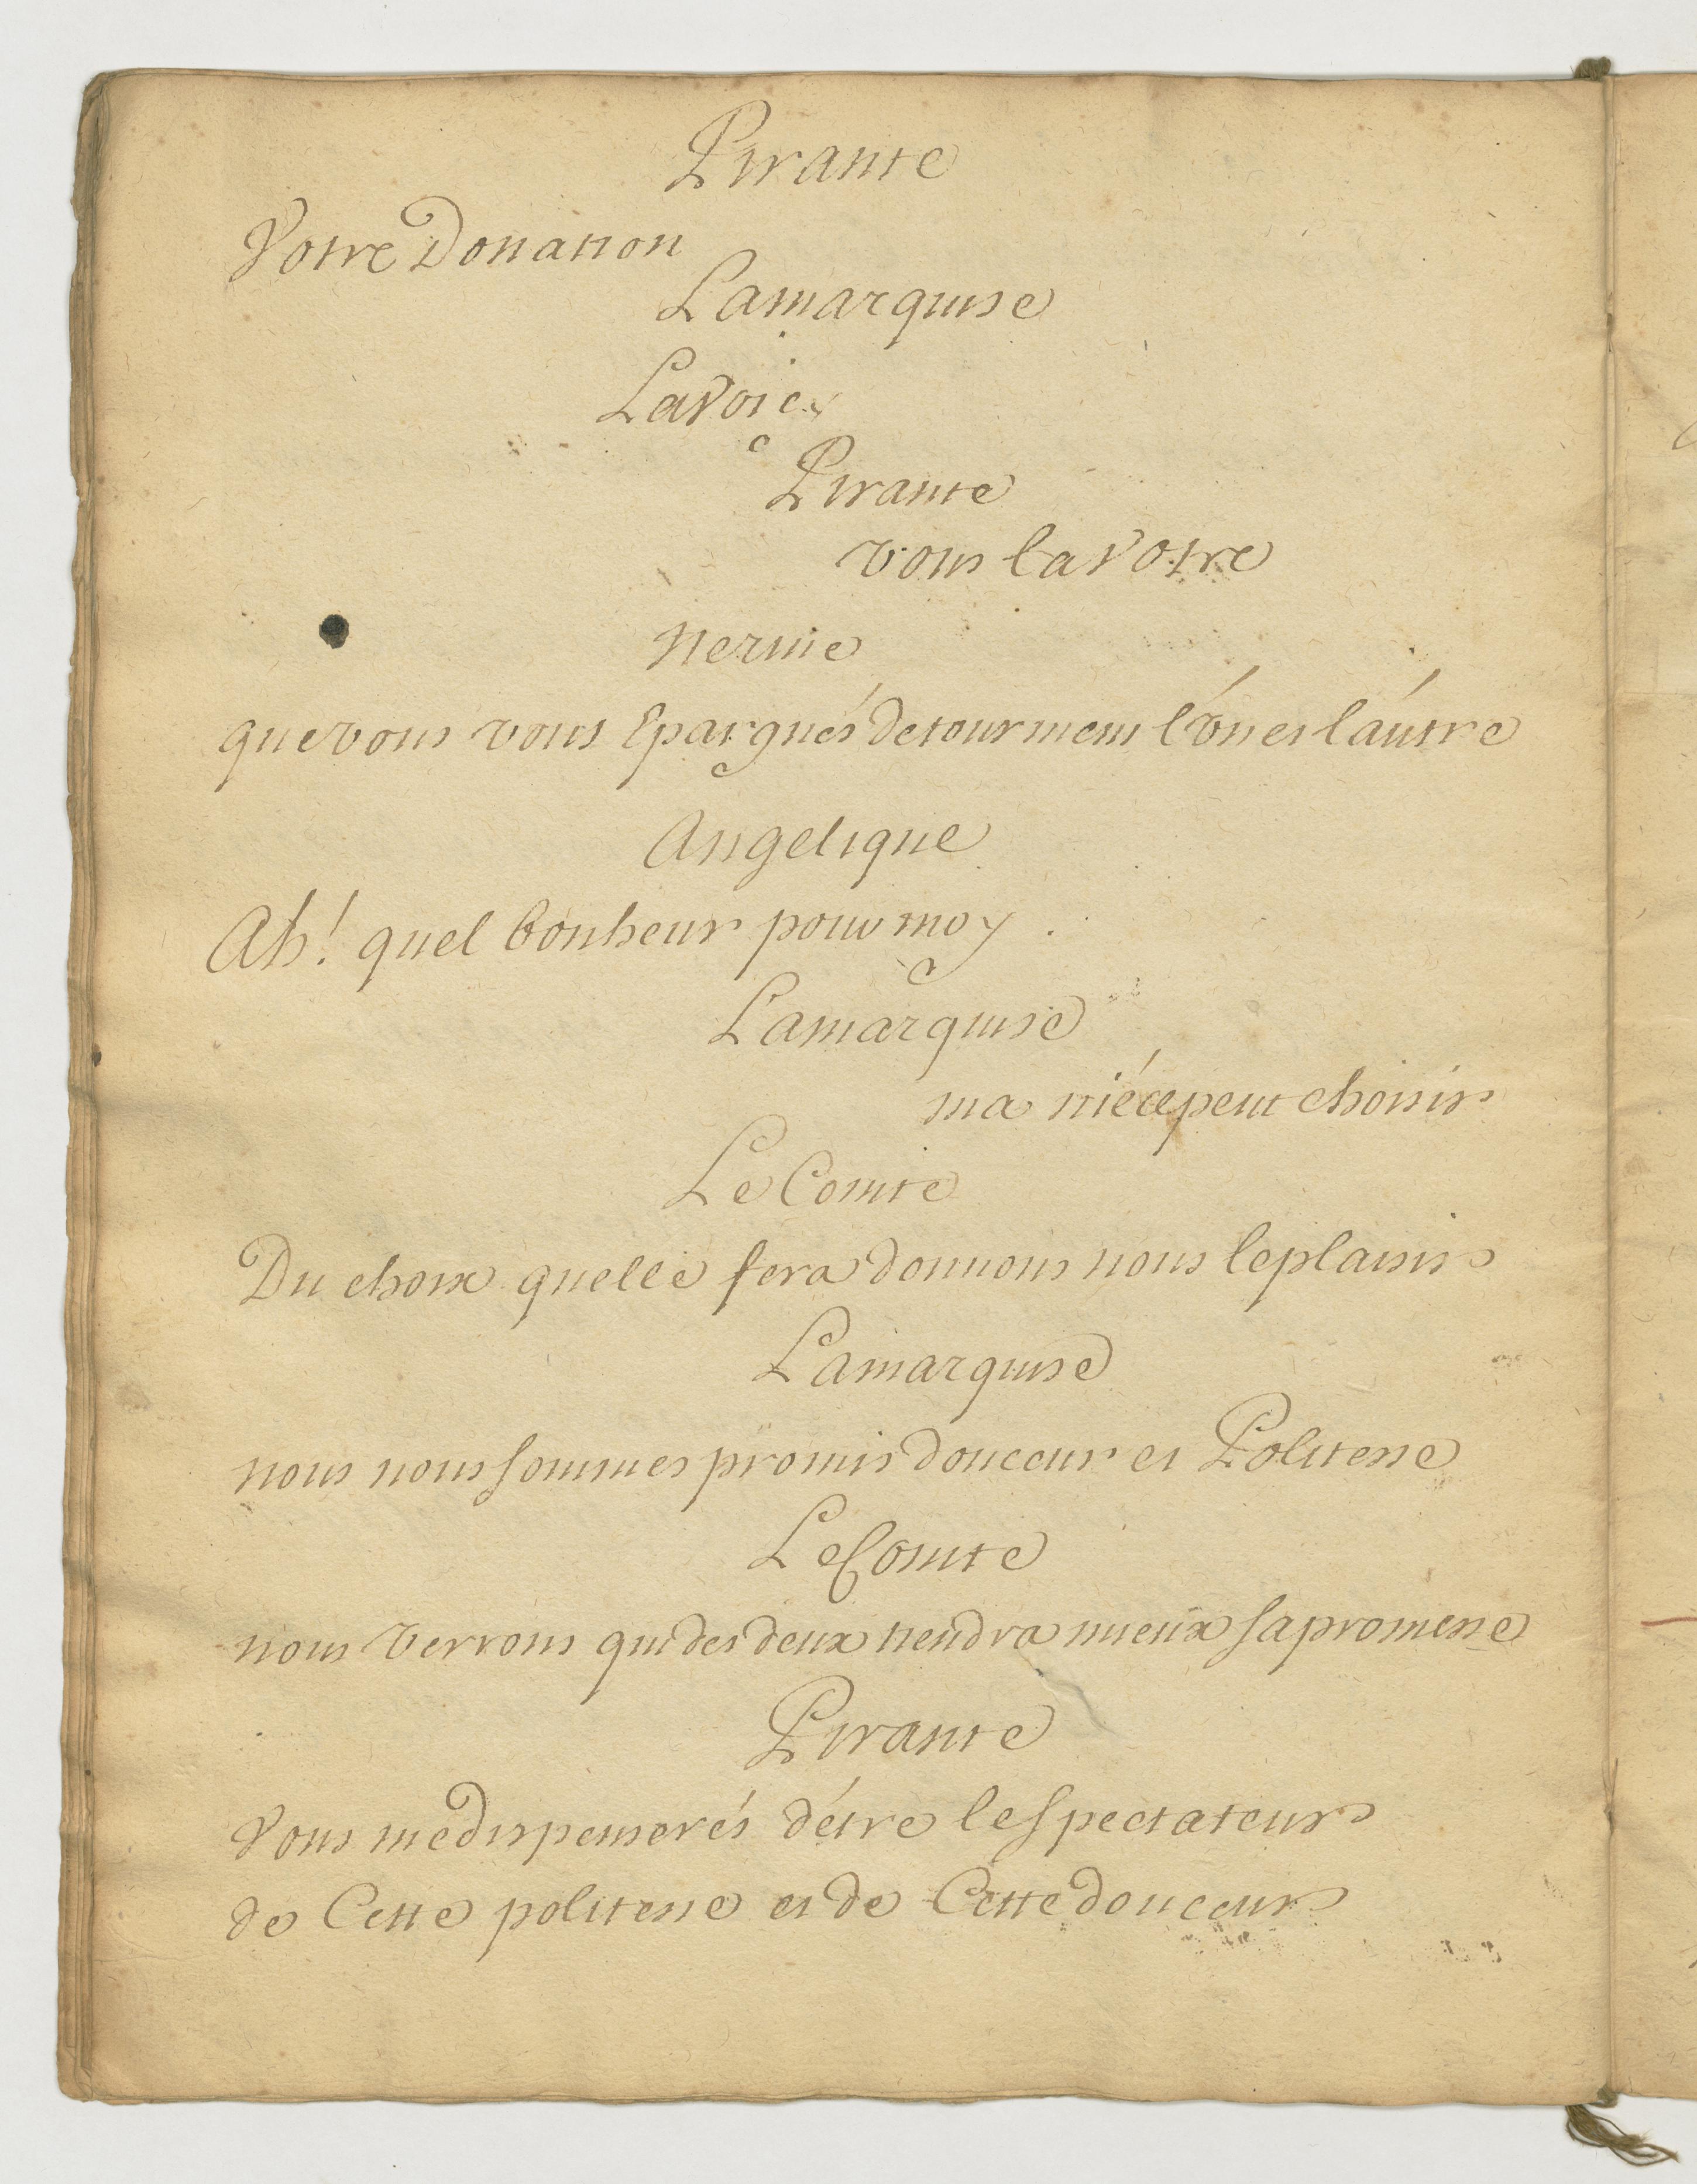 Pirante
Votre Donation
Lamarquise
Lavoicy
Pirante
vous la votre
nerine
que vous vous Epargnés de tourmens l'ún et l'áutre
Angelique
Ah! quel bonheur pour moy.
Lamarquise
ma niéce peut choisir
Le Comte
Du choix quelle fera donnons nous le plaisir
Lamarquise
nous nous sommes promis douceur et Politesse
Le Comte
nous verrons qui des deux tiendra mieux sa promesse
Pirante
Vous me dispenserés d'étre le spectateur
de Cette politesse et de Cette douceur